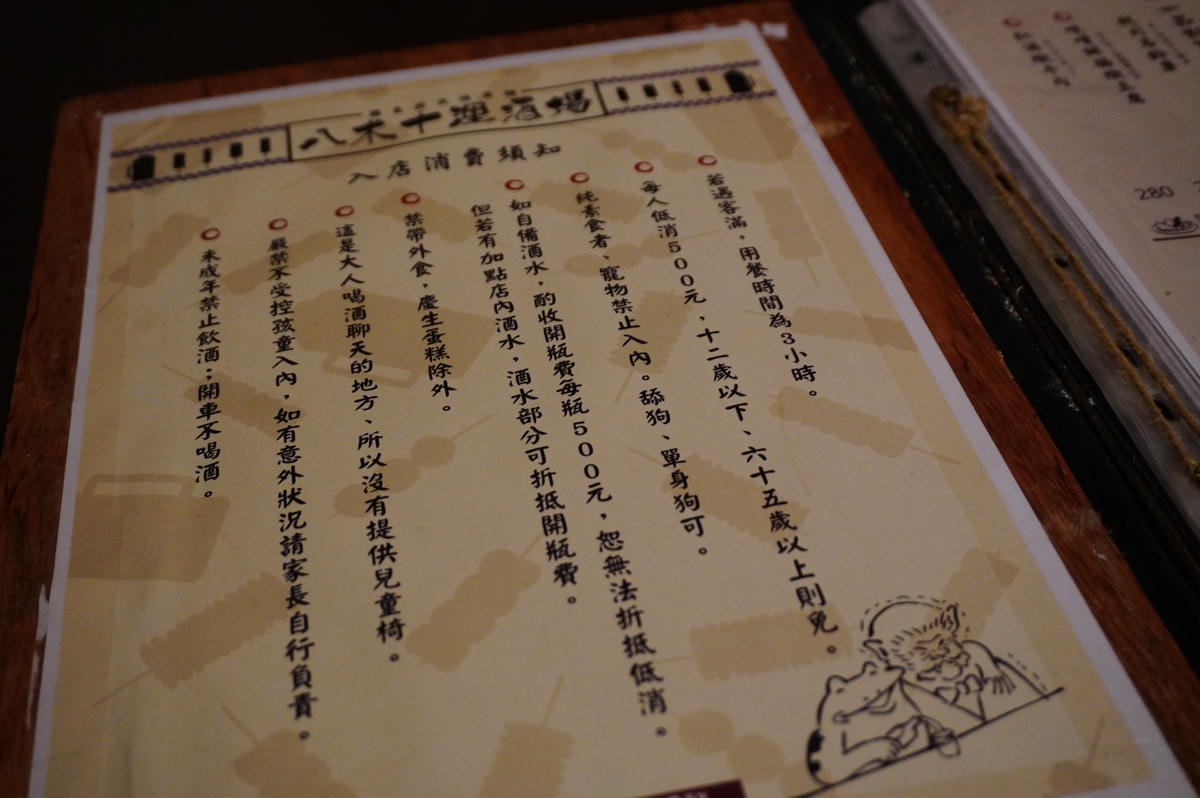 八禾十浬酒場
入店消費須知
若遇客滿，用餐時間為3小時。
每人低消500元，十二歲以下、六十五歲以上則免。
純素食者、寵物禁止入內。舔狗、單身狗可。
如自備酒水，酌收開瓶費每瓶500元，恕無法折抵低消。
但若有加點店內酒水，酒水部分可折抵開瓶費。
禁帶外食，慶生蛋糕除外。
這是大人喝酒聊天的地方、所以沒有提供兒童椅。
嚴禁不受控孩童入內，如有意外狀況請家長自行負責。
未成年禁止飲酒；開車不喝酒。
280